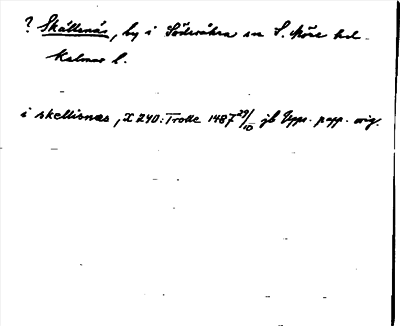 ? Skällenäs, by i Söderåkra sn S. Möre hd.
Kalmar l.
i skellisnæs, X 240: Trolle 1487 29/10 jb Upps. papp. orig.